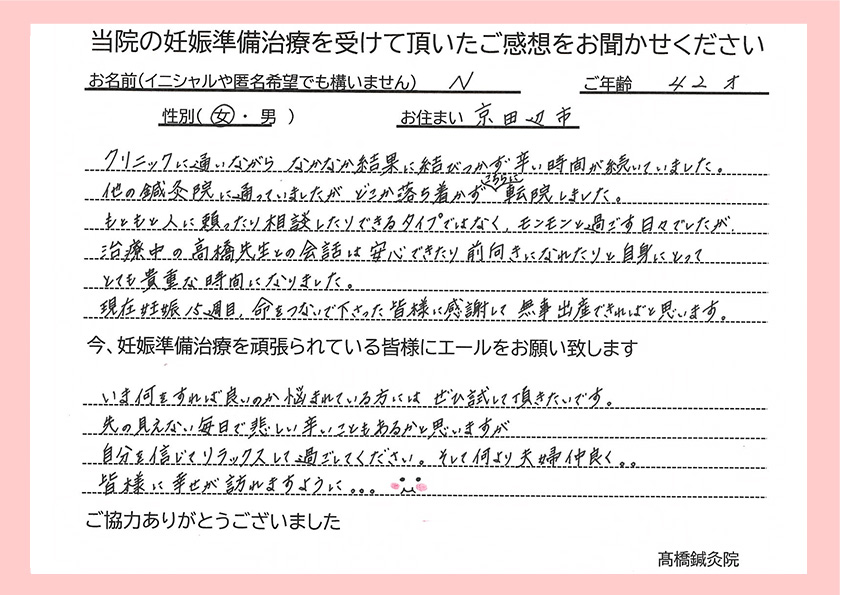 当院の妊娠準備治療を受けて頂いたご感想をお聞かせください
お名前(イニシャルや匿名希望でも構いません) N ご年齢 42才
性別( 女 ・ 男 ) お住まい 京田辺市
クリニックに通いながら なかなか結果に結びつかず 辛い時間が続いていました。
他の鍼灸院に通っていましたが どこか落ち着かず こちらに転院しました。
もともと人に頼ったり相談したりできるタイプではなく、モンモンと過ごす日々でしたが、
治療中の高橋先生との会話は安心できたり前向きになれたりと自身にとって
とても貴重な時間になりました。
現在妊娠15週目、命をつないで下さった皆様に感謝して 無事出産できればと思います。
今、妊娠準備治療を頑張られている皆様にエールをお願い致します
いま何をすれば良いのか悩まれている方には ぜひ試して頂きたいです。
先の見えない毎日で悲しい辛いこともあるかと思いますが
自分を信じてリラックスして過ごしてください。そして何より夫婦仲良く。。
皆様に幸せが訪れますように。。。
ご協力ありがとうございました
髙橋鍼灸院